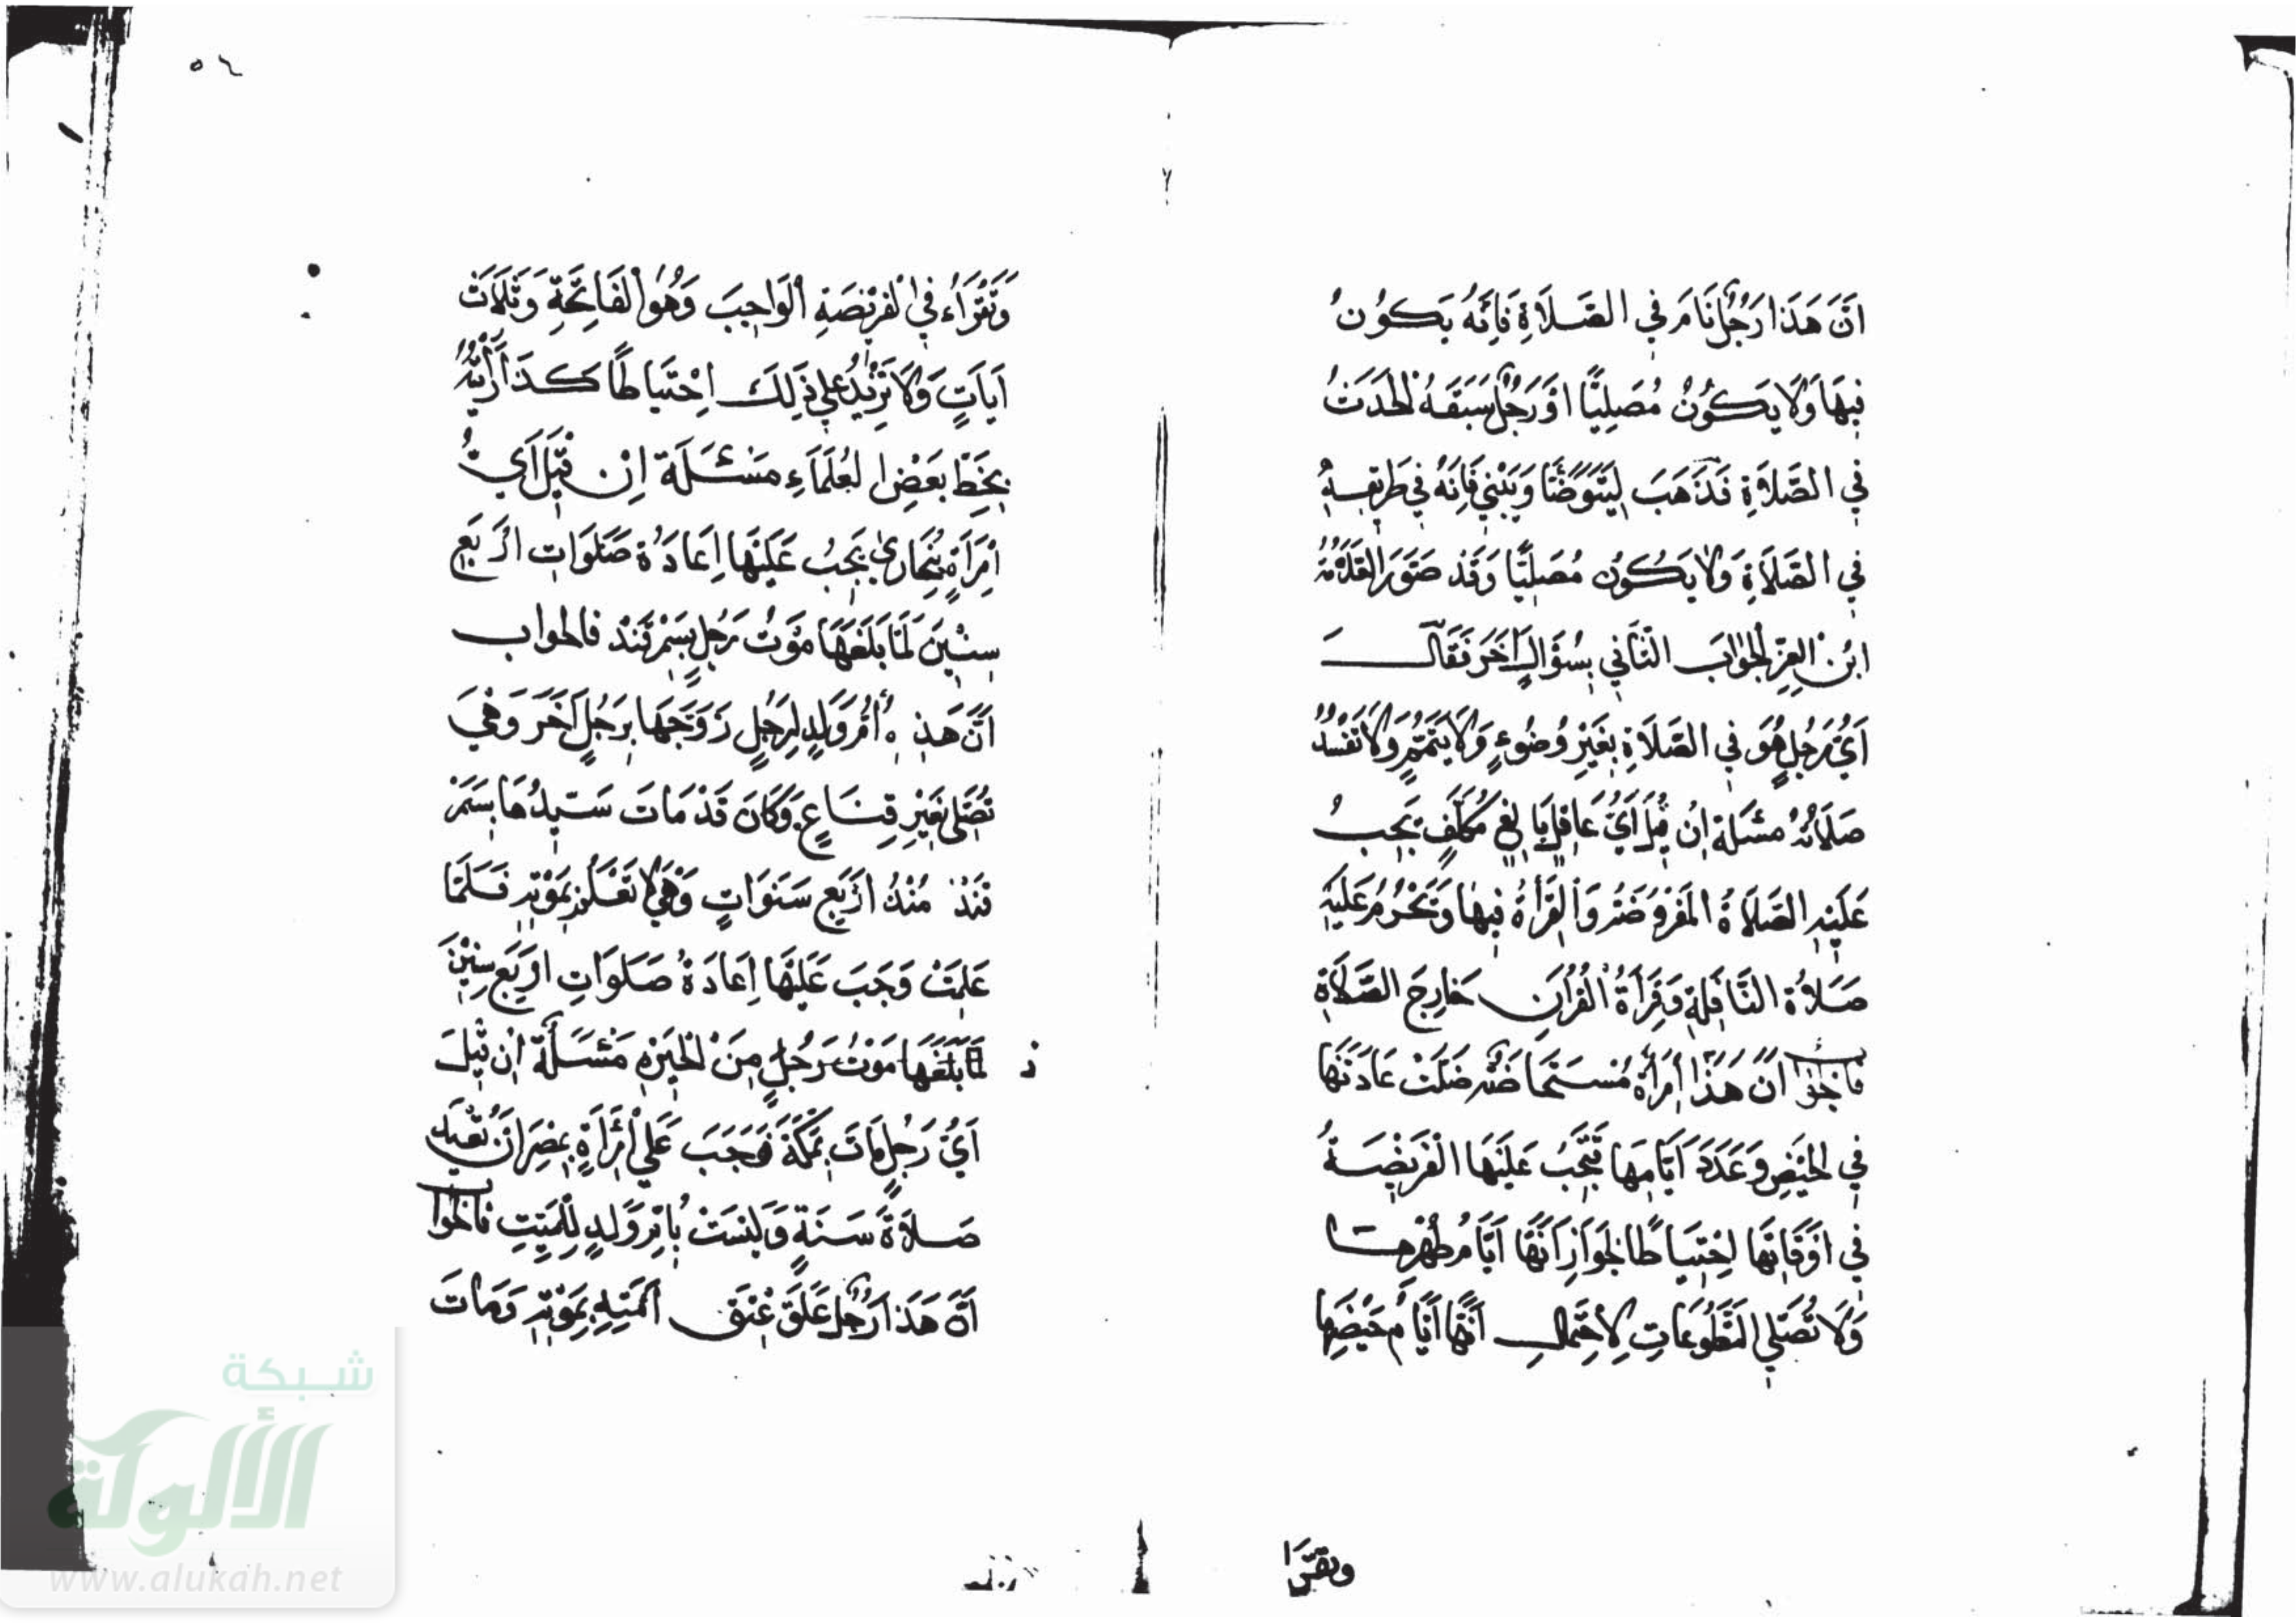 اَنَّ هَذَا رَجُلٌ نَامَ فِي الصَّلَاةِ فَاِنَّهُ يَكُونُ
فِيهَا وَلَا يَكُونُ مُصَلِيًّا اوَ رَجُلٌ سَبَقَهُ الحَدَثُ
فِي الصَّلَاةِ فَذَهَبَ لِيَتَوَضَّأَ وَيَبْنِي فَاِنَهُ فِي طَرِيقِهِ
فِي الصَّلَاةِ وَلَا يَكُونُ مُصَلِيًّا وَقَد صَوَّرَ العَلَامَةُ
ابْنُ العِزِّ الجَوَابَ الثَّانِي بِسُؤَالٍ اَخَرَ فَقَالَ
اَيُّ رَجُلٍ هُوَ فِي الصَّلَاةِ بِغَيْرِ وُضُوءٍ وَلَا يَتَيَمَّمٍ وَلَا تَفْسُدُ
صَلَاتُهُ مسْئَلة اِنْ قِيلَ اَيُّ عَاقِلٍ بَالِغٍ مُكَلَّفٍ يَجِبُ
عَلَيْهِ الصَّلَاةُ المَفْرُوضَةُ وَالْقِرَأةُ فِيهَا وَيَحْرُمُ عَلَيْهِ
صَلَاةُ النَّافِلَةِ وَقِرَأةُ القُرْاَنِ خَارِجَ الصَّلَاةِ
فاَلجَوَابُ اَنَّ هَذَا اِمْرَأةٌ مُسْتَحَاضَةٌ ضَلَّتْ عَادَتَهَا
فِي الحَيْضِ وَعَدَدَ اَيَّامِهَا فَيَجِبُ عَلَيْهَا الْفَرِيْضَةُ
فِي اوَقَاتِهَا اِحْتِيَاطًا لجَوَازِ اَنَّهَا اَيَّامُ طُهْرِهَا
وَلَا تُصَلِّي المُتَطَوَّعَاتِ لِاحْتِمَالِ اَنَّهَا اَيَّامُ حَيْضِهَا
وتقرا
٥٦
وَتَقْرَاُء فِي الفَرِيْضَةِ الوَاجِبَ وَهُوَ الفَاتِحَةِ وَثَلَاثَ
اَيَاتٍ وَلَا تَزِيْدُ عَلي ذَلِكَ اِحْتيَاطًا كَذَا رَأَيْتُهُ
بِخَطِّ بَعْضِ العُلَمَاءِ مَسْئَلَة اِنْ قِيْلَ اَيُّ
اِمْرَأةٍ بِبُخَارَى يَجِبُ عَلَيْهَا اِعَادَةُ صَلَوَاتِ ارْبَعِ
سِنْيْنَ لَمَّا بَلَغَهَا مَوْتُ رَجُلٍ بِسَمْرقَنْدَ فالجواب
اَنَّ هَذِهِ اُمُّ وَلَدٍ لِرَجُلٍ زَوَّجَهَا بِرَجُلٍ اَخَرَ وَهِيَ
تُصَلِّي بغَيْرِ قِنَاعٍ وَكَانَ قَدْ مَاتَ سَيِّدُهَا بِسَمَرْ
قَنْدَ مُنْذُ ارْبَعِ سَنَوَاتٍ وَهِيَ لَا تَعْلَمُ بِمَوْتِهِ فَلَمَّا
عَلِمَتْ وَجَبَ عَلَيْهَا اِعَادَةُ صَلَوَاتِ ارْبَعِ سِنِيْنَ
لَمَّا بَلَغَهَا مَوْتُ رَجُلٍ مِنَ الجِيزَةِ مَسْئَلَة اِنْ قِيْلَ
اَيُّ رَجُلٍ مَاتَ بِمَكَّةَ فَوَجَبَ عَلي امْرَأةٍ بِمِصْرَ اَنْ تُعِيْدَ
صَلَاةَ سَنَةٍ وَلَيْسَتْ بِاُمِّ وَلَدٍ لِلْمَيِّتِ فالجوَابُ
اَنَّ هَذَا رَجُلٌ عَلَّقَ عِتْقَ اَمَتِهِ بِمَوْتِهِ وَمَاتَ
شبكة
الألوكة
www.alukah.net